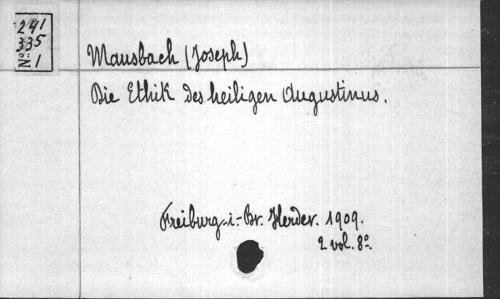 241
335
No: 1
Mausbach (Joseph)
Die Ethik des heiligen Augustinus.
Freiburg-i.-Br. Herder. 1909.
2 vol. 8º.